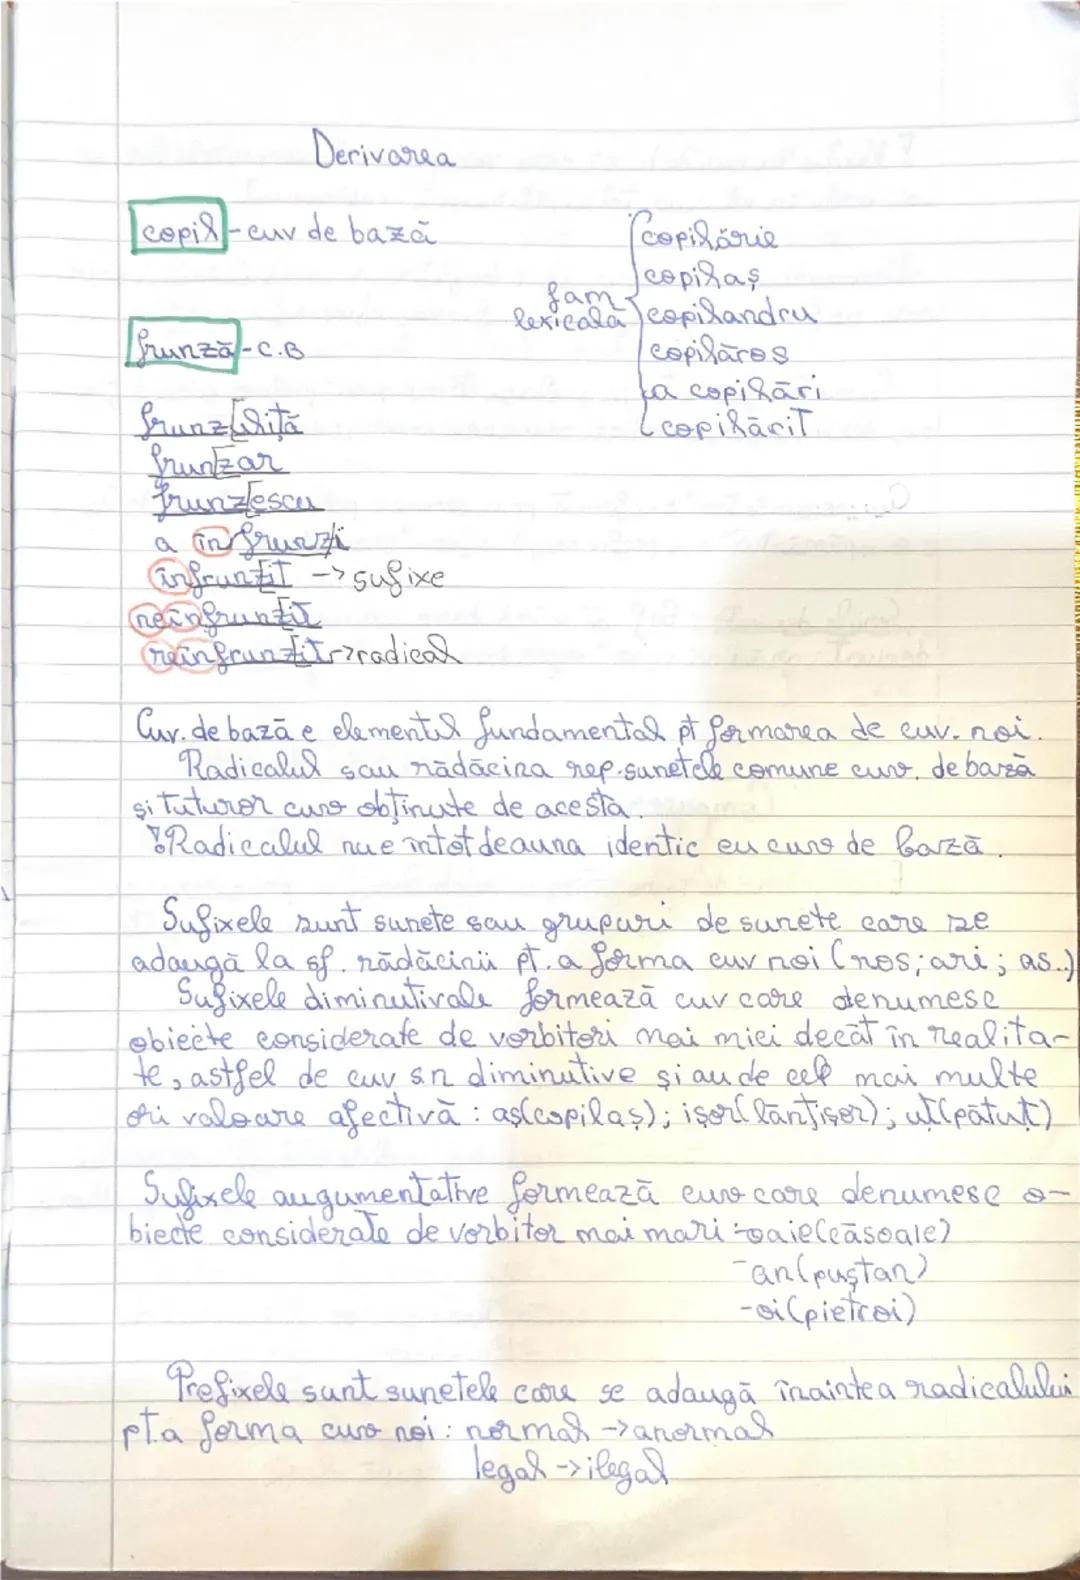 Derivarea
copil - cuv de bază
fam lexicală
copilărie
copilaș
copilandru
copilăros
a copilări
copilărit
frunză - C.B
frunzuliță
frunzar
frunzescu
a înfrunzi
înfrunzit -> sufixe
neînfrunzit
reînfrunzit -> radical
Cuv. de bază e elementul fundamental pt formarea de cuv. noi.
Radicalul sau rădăcina rep. sunetele comune cuv. de bază
și tuturor cuv obținute de acesta.
! Radicalul nu e întotdeauna identic cu cuv de bază.
Sufixele sunt sunete sau grupuri de sunete care se
adaugă la sf. rădăcinii pt. a forma cuv noi (ros; ari; as..)
Sufixele diminutivale formează cuv care denumesc
obiecte considerate de vorbitori mai mici decât în realita-
te, astfel de cuv s.n diminutive și au de cele mai multe
ori valoare afectivă : aș(copilaș); ișor(lănțișor); uț(pătuț)
Sufixele augumentative formează cuv care denumesc o-
biecte considerate de vorbitor mai mari -oaie(căsoaie)
-an(puștan)
-oi(pietroi)
Prefixele sunt sunetele care se adaugă înaintea radicalului
pt.a forma cuv noi : normal -> anormal
legal -> ilegal